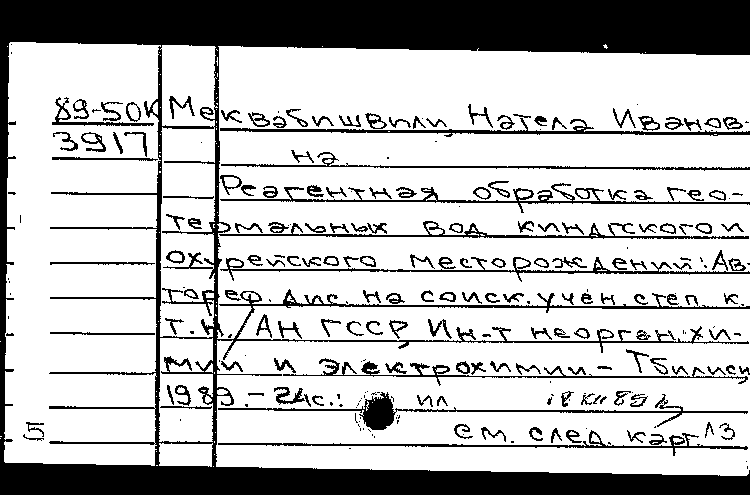 89-50К Меквабишвили, Натела Иванов-
3917 на
Реагентная обработка гео-
термальных вод киндгского и
охурейского месторождений: Ав-
тореф. дис. на соиск. учен. степ. к.
т.н. / АН ГССР, Ин-т неорган. хи-
мии и электрохимии. - Тбилиси,
1989. - 24с.: ил.
см. след. карт.
5